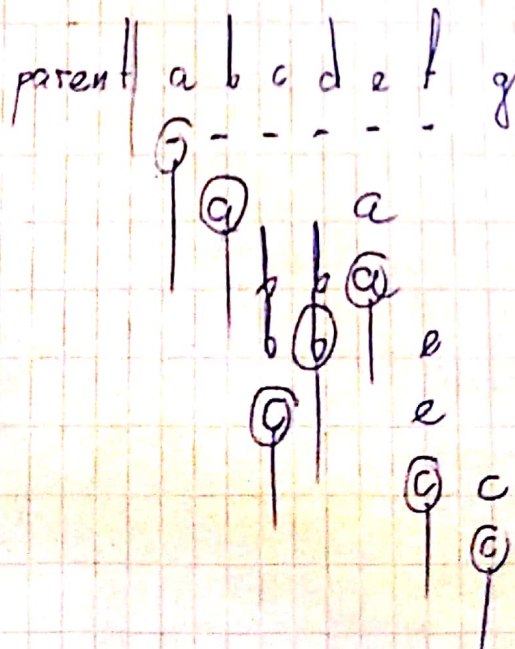 parent a b c d e f g
- - - - - -
a a
b b a
b b e
c e
c c
c